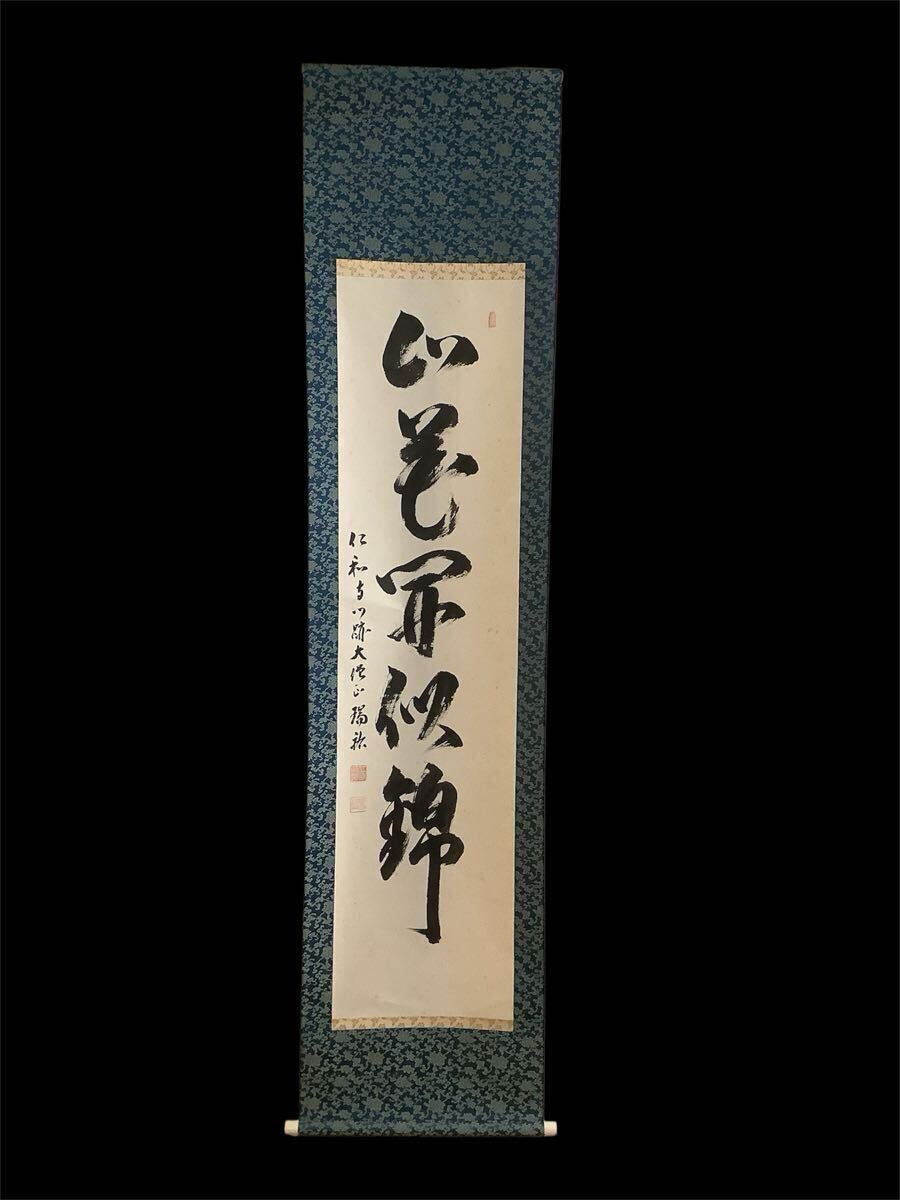 山花開似錦
仁和寺門跡大僧正瑞